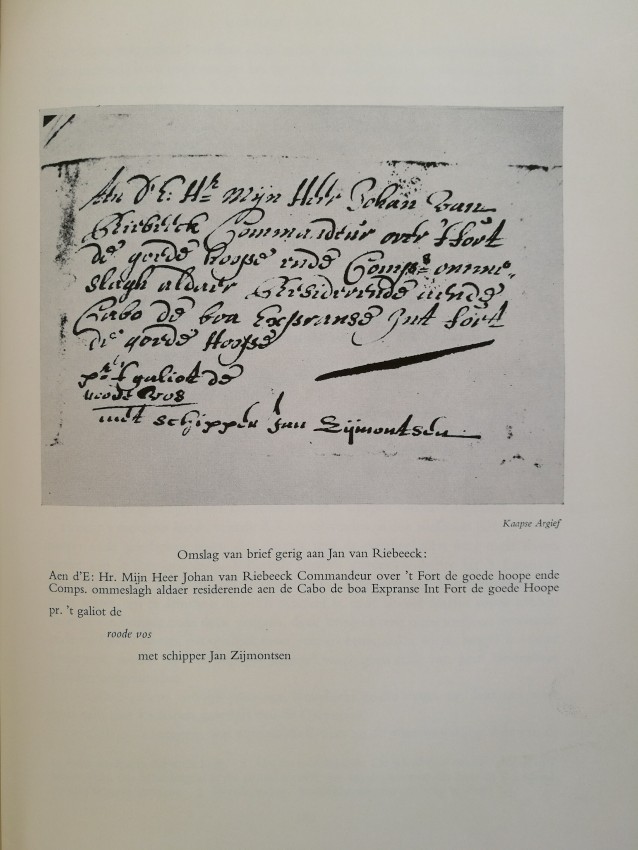 Aen d'E: Hr Mijn Heer Johan van
Riebeeck Commandeur over 't fort
de goede hoope ende Comps omme-
slagh aldaer Residerende aende
Cabo de boa Expranse Int fort
de goede Hoope
pr 't galiot de
roode vos
met schipper Jan Zijmontsen
Kaapse Argief
Omslag van brief gerig aan Jan van Riebeeck:
Aen d'E: Hr. Mijn Heer Johan van Riebeeck Commandeur over 't Fort de goede hoope ende
Comps. ommeslagh aldaer residerende aen de Cabo de boa Expranse Int Fort de goede Hoope
pr. 't galiot de
roode vos
met schipper Jan Zijmontsen